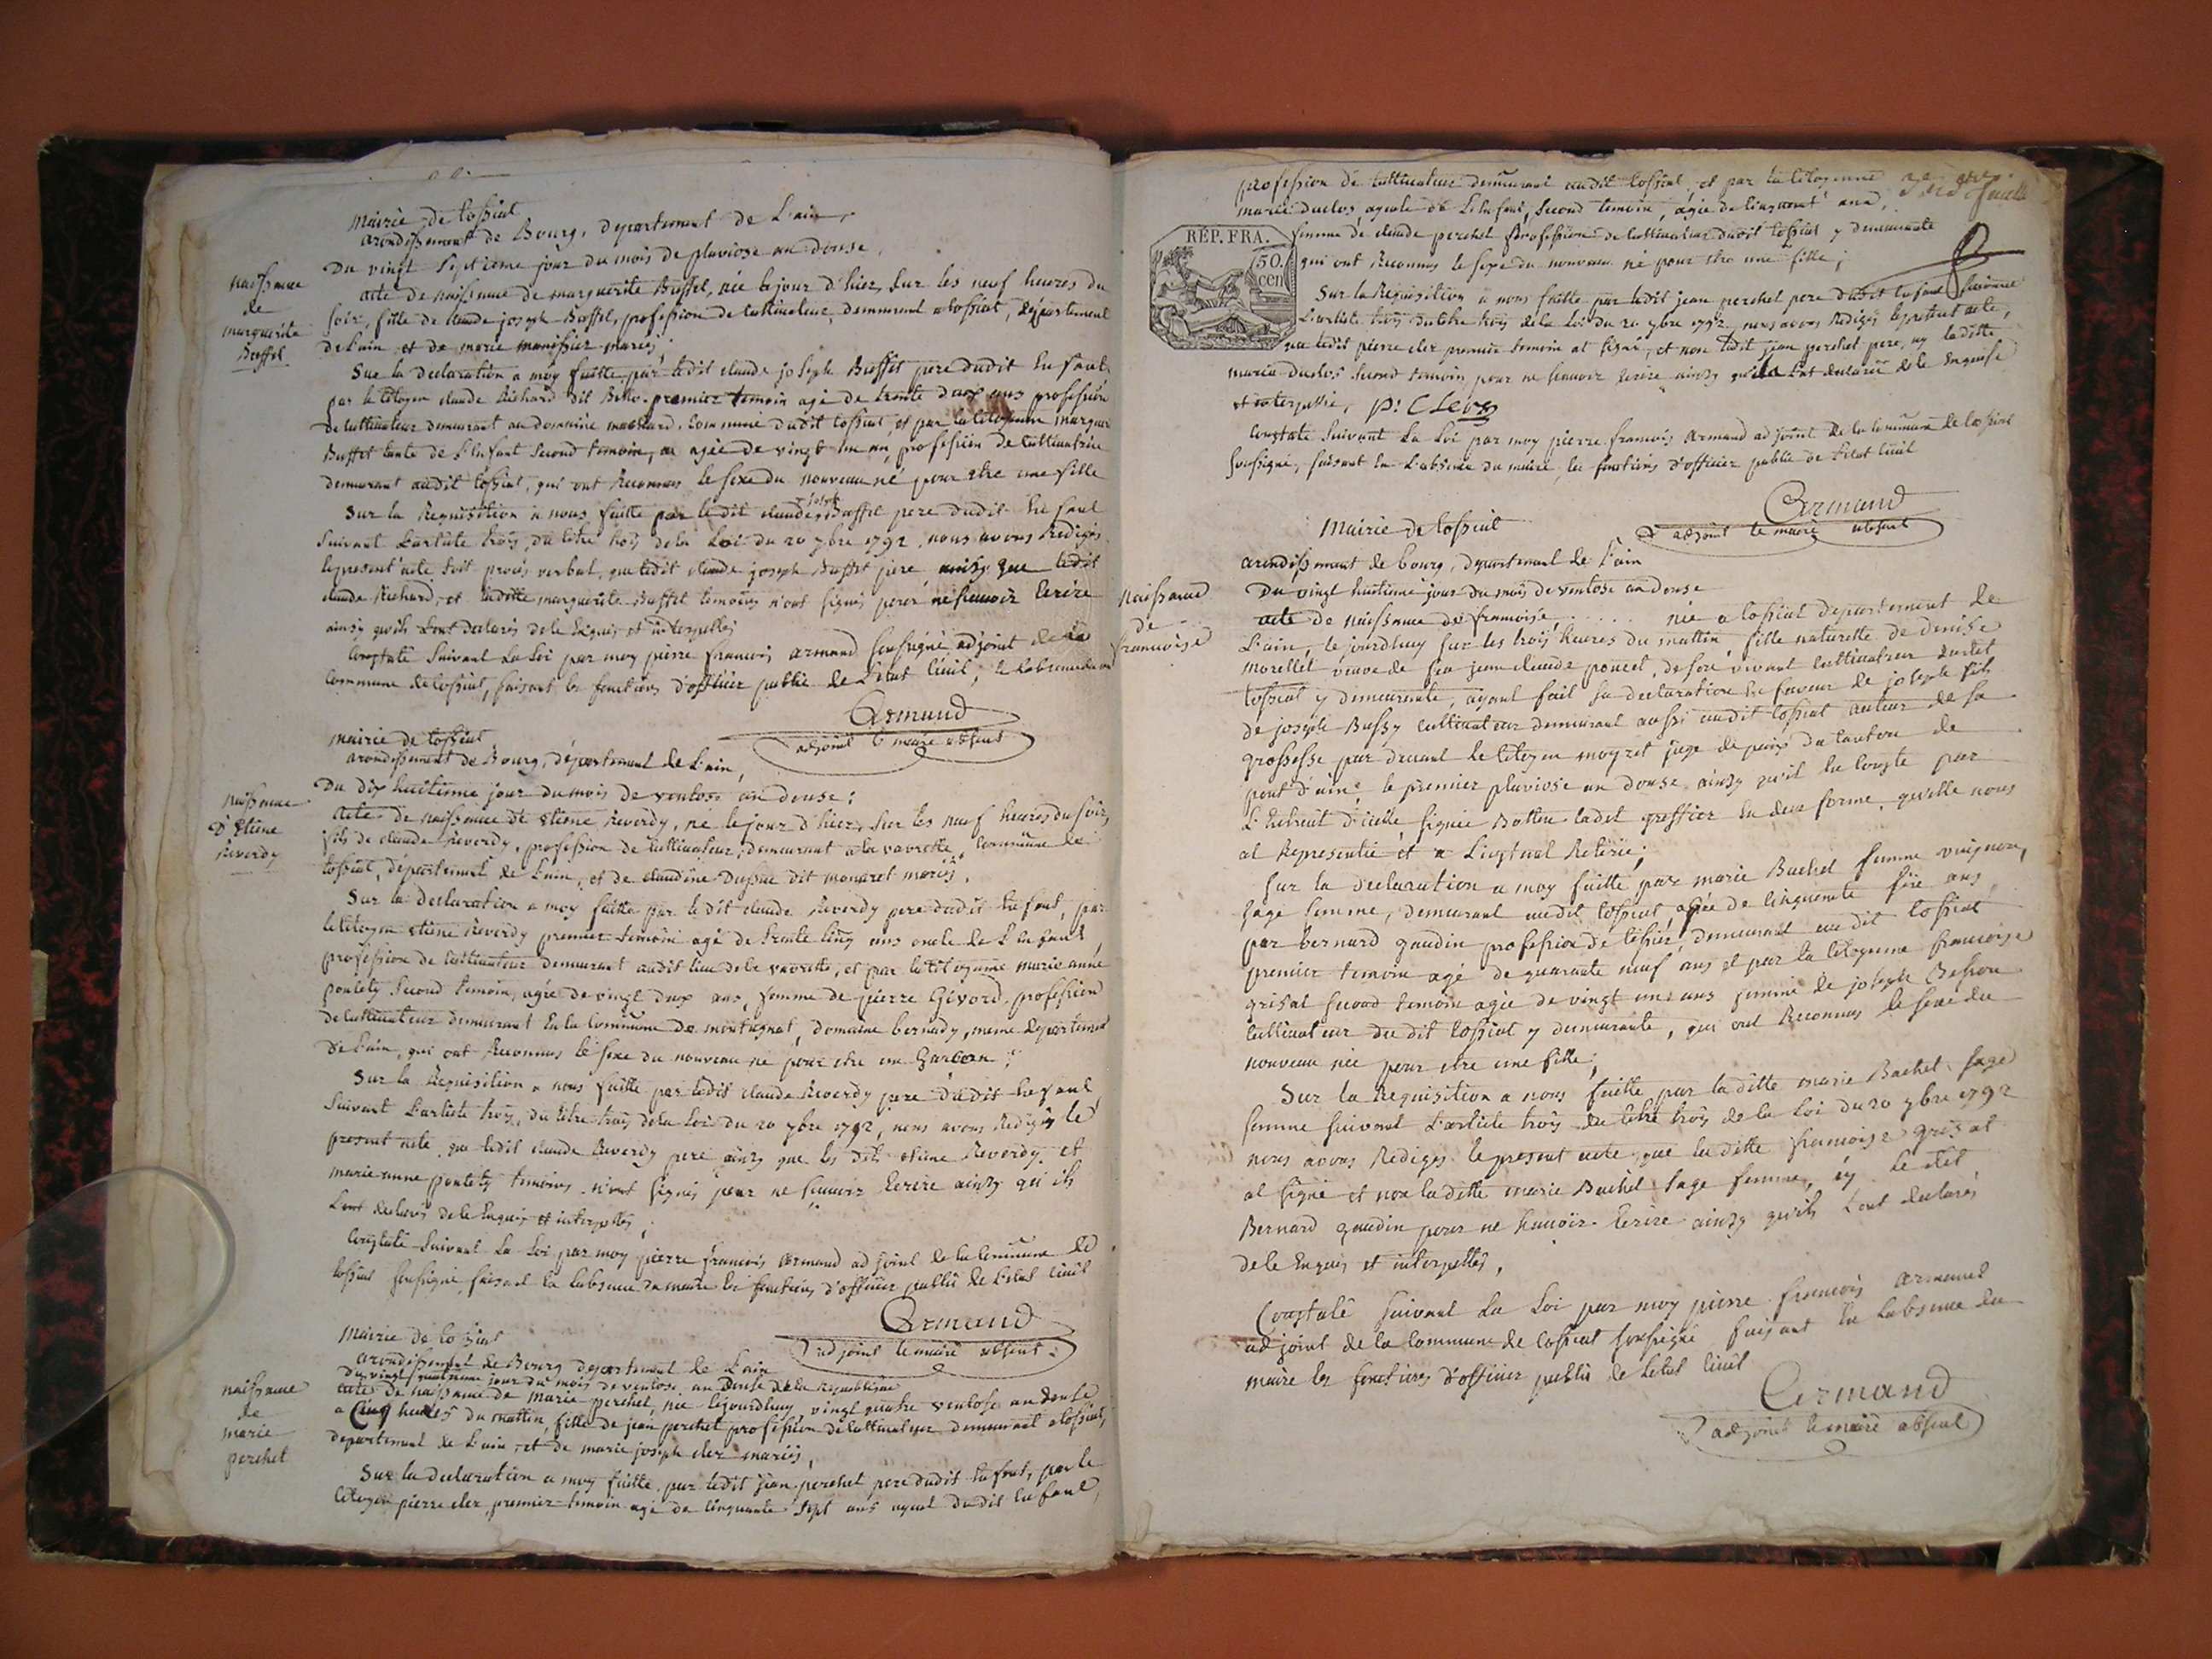 Mairie de tossiat
arondissement de Bourg, departement de L'ain,
Du vingt septieme jour du mois de pluviose an douse,
naissance
de
marguerite
Buffet
acte de naissance de marguerite Buffet, née le jour d'hier, sur les neuf heures du
soir, fille de claude joseph Buffet, profession de cultivateur, demeurant a tossiat, département
de l'ain et de marie manissier mariés,
Sur la declaration a moy faitte par ledit claude joseph Buffet pere dudit Enfant
par le citoyen claude Richard dit premier temoin agé de trente deux ans profession
de cultivateur demeurant au domaine Commune dudit tossiat, et par la citoyenne
Buffet tante de L'Enfant second temoin, agée de vingt un an, profession de cultivatrice
demeurant audit tossiat, qui ont Reconnus le sexe du nouveau né pour etre une fille
Sur la Requisition a nous faitte par le dit claude joseph Buffet pere dudit Enfant
suivant L'article trois, du titre trois dela Loi du 20 7bre 1792, nous avons Rédigés
le present acte soit procès verbal, que ledit claude joseph Buffet pere ainsy que ledit
claude Richard, et laditte marguerite Buffet temoins n'ont signés pour ne scavoir Ecrire
ainsy qu'ils L'ont declarés de le Enquis et interpellés
Constaté suivant La Loi par moy pierre francois armand soussigné adjoint de la
Commune de tossiat, faisant les fonctions d'officier public de L'etat civil, en
Armand
adjoint le maire absent
mairie de tossiat
arondissement de Bourg, département de L'ain,
Du dix huitieme jour du mois de ventose an douse;
naissance
d'Etiene
Reverdy
Acte de naissance de Etiene Reverdy, né le jour d'hier, sur les neuf heures du soir,
fils de claude Reverdy, profession de cultivateur, demeurant a la vavrette, Commune de
tossiat, département de L'ain, et de claudine dit monaret mariés.
Sur la declaration a moy faitte par le dit claude Reverdy pere dudit Enfant, par
le citoyen etiene Reverdy premier temoin agé de trente cinq ans oncle de L'Enfant,
profession de cultivateur demeurant audit lieu dela vavrette, et par la citoyenne marie anne
pontety second temoin, agée de vingt deux ans, femme de pierre Givord profession
de cultivateur demeurant En la Commune de montagnat, domaine bernady, meme departement
de L'ain, qui ont Reconnus le sexe du nouveau né pour etre un Garcon;
Sur la Requisition a nous faitte par ledit claude Reverdy pere dudit Enfant,
suivant L'article trois, du titre trois dela Loi du 20 7bre 1792, nous avons Rédigés le
present acte que ledit claude Reverdy pere ainsy que les dits etiene Reverdy et
marie anne pontety temoins n'ont signés pour ne scavoir Ecrire ainsy qu'ils
L'ont declarés de le Enquis et interpellés,
Constaté suivant La Loi par moy pierre francois armand adjoint de la Commune de
tossiat soussigné faisant En L'absence du maire les fonctions d'officier public de L'etat civil
Armand
adjoint le maire absent
Mairie de tossiat
arondissement de Bourg departement de L'ain
Du vingt quatrieme jour du mois de ventose an Douse de la Republique
naissance
de
marie
perchet
acte de naissance de Marie perchet, née le jourdhuy vingt quatre ventose an douse
a Cinq heures du mattin, fille de jean perchet profession de cultivateur demeurant a tossiat,
departement de L'ain, et de marie joseph cler mariés,
Sur la declaration a moy faitte par ledit jean perchet pere dudit Enfant, par le
citoyen pierre cler premier temoin agé de cinquante sept ans ayeul dudit Enfant,
profession de cultivateur demeurant audit tossiat, et par la citoyenne
marie duclos, ayeule de L'Enfant, second temoin, agée de cinquante ans,
femme de claude perchet profession de cultivateur dudit tossiat y demeurante
REP. FRA.
50.
cen
qui ont Reconnus le sexe du nouveau né pour etre une fille;
Sur la Requisition a nous faitte par ledit jean perchet pere dudit Enfant suivant
L'article trois du titre trois de la Loi du 20 7bre 1792 nous avons Rédigés le present acte,
que ledit pierre cler premier temoin at signé, et non ledit jean perchet pere, ny laditte
marie duclos second temoin pour ne scavoir Ecrire ainsy de le Enquise
et interpellée, p: Cler
Constaté suivant La Loi par moy pierre francois Armand adjoint de la Commune de tossiat
soussigné, faisant En L'absence du maire les fonctions d'officier public de L'etat civil
Armand
adjoint le maire absent
Mairie de tossiat
arondissement de bourg, departement de L'ain
Du vingt huitieme jour du mois de ventose an douse
Naissance
de
francoise
acte de naissance de francoise, . . . . . née a tossiat departement de
L'ain, le jourdhuy sur les trois heures du mattin, fille naturelle de denise
Morellet veuve de feu jean claude poncet, de son vivant cultivateur dudit
tossiat y demeurante, ayant fait sa declaration En faveur de joseph fils
de joseph Bussy cultivateur demeurant aussi audit tossiat auteur de sa
grossesse par devant le citoyen moyret juge de paix du canton de
pont d'ain, le premier pluviose an douse ainsy qu'il En Conste par
L'Extrait d'icelle, signée greffier En due forme, qu'elle nous
at Representé et a L'instant Retirée;
Sur la declaration a moy faitte par marie Bachet femme vuignon,
sage femme, demeurant audit tossiat, agée de cinquante ans,
par bernard gaudin profession de tissier, demeurant au dit tossiat
premier temoin agé de quarante neuf ans et par la citoyenne francoise
grisat second temoin agée de vingt un ans femme de joseph Besson
cultivateur du dit tossiat y demeurante, qui ont Reconnus le sexe du
nouveau née pour etre une fille;
Sur la Requisition a nous faitte par laditte marie Bachet sage
femme suivant L'article trois du titre trois de la Loi du 20 7bre 1792
nous avons Rédigés le present acte que laditte francoise grisat
at signé et non laditte marie Bachet sage femme, ny le dit
Bernard gaudin pour ne scavoir Ecrire ainsy qu'ils L'ont declarés
de le Enquis et interpellés,
Constaté suivant La Loi par moy pierre francois armand
adjoint de la Commune de tossiat soussigné faisant En L'absence du
maire les fonctions d'officier public de L'etat civil
Armand
adjoint le maire absent